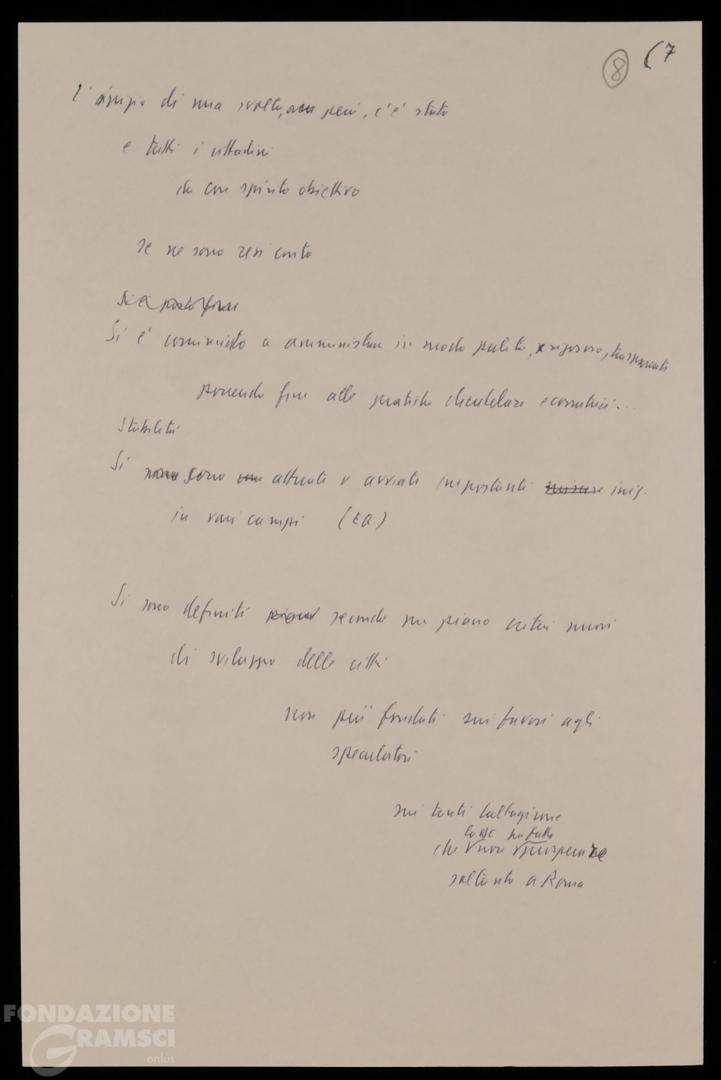 8 (7
L'inizio di una svolta, però, c'è stato
e tutti i cittadini
che con spirito obiettivo
se ne sono resi conto
Si è
Si è cominciato a amministrare in modo pulito, rigoroso, trasparente
ponendo fine alle pratiche clientelari e corruttrici..
Stabilità
Si sono attuate o avviate importanti iniz.
in vari campi (EQ.)
Si sono definiti secondo un piano criteri nuovi
di sviluppo della città
non più fondati sui favori agli
speculatori
sui tanti Caltagirone
che
soltanto a Roma
FONDAZIONE
GRAMSCI
onlus